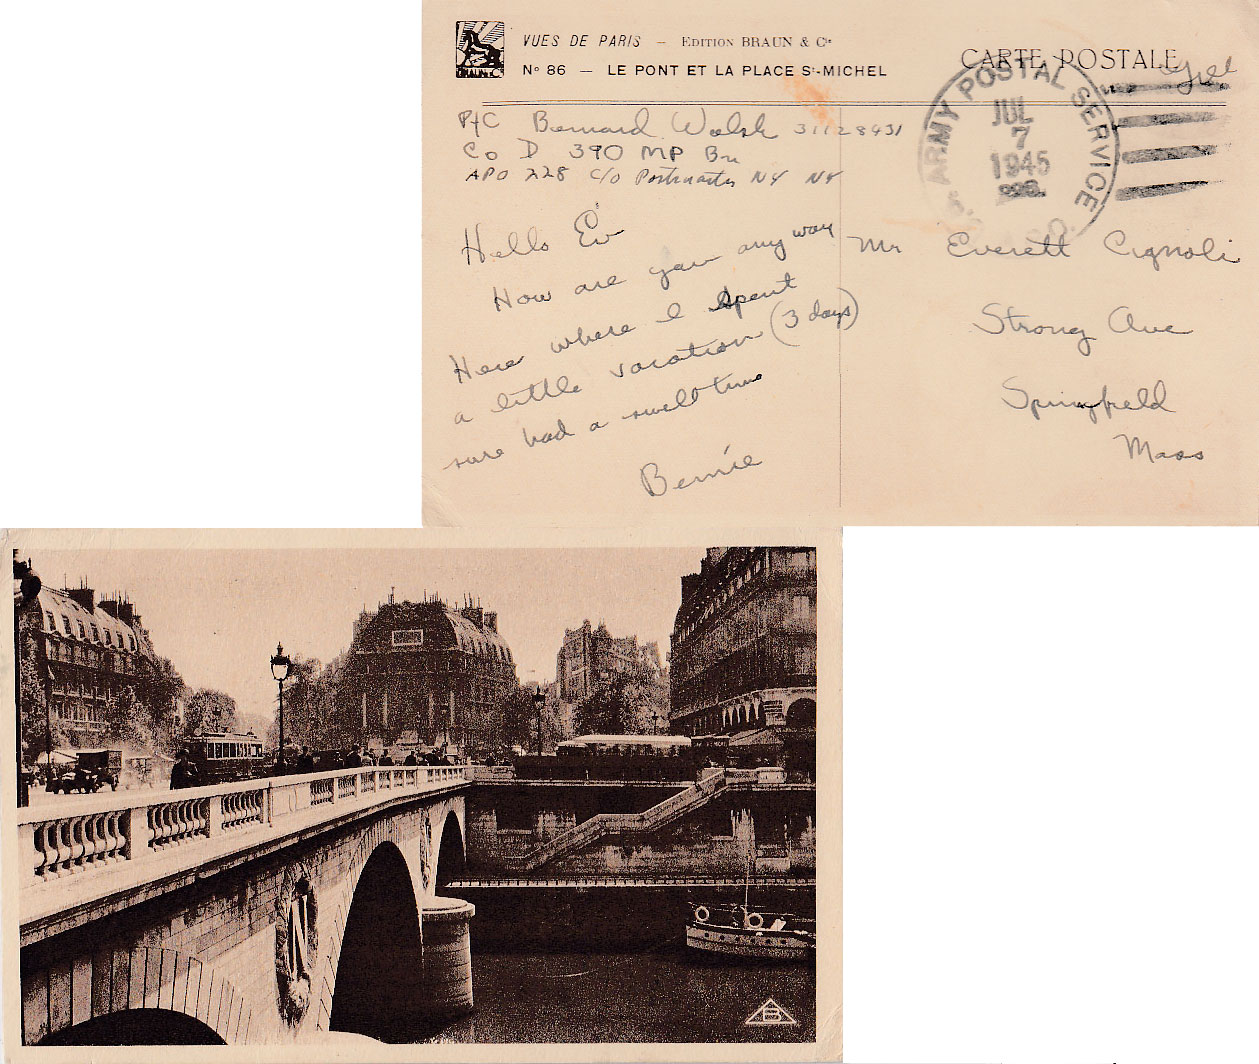 BRAUN & Cie
VUES DE PARIS – EDITION BRAUN & Cie
No 86 – LE PONT ET LA PLACE St-MICHEL
CARTE POSTALE
Free
U.S. ARMY POSTAL SERVICE
JUL
7
1945
Pfc Bernard Walsh 31128431
Co D 390 MP Bn
APO 228 c/o Postmaster NY NY
Hello Ev
How are you anyway
Here where I spent
a little vacation (3 days)
sure had a swell time
Bernie
Mr Everett Cignoli
Strong Ave
Springfield
Mass
N
B